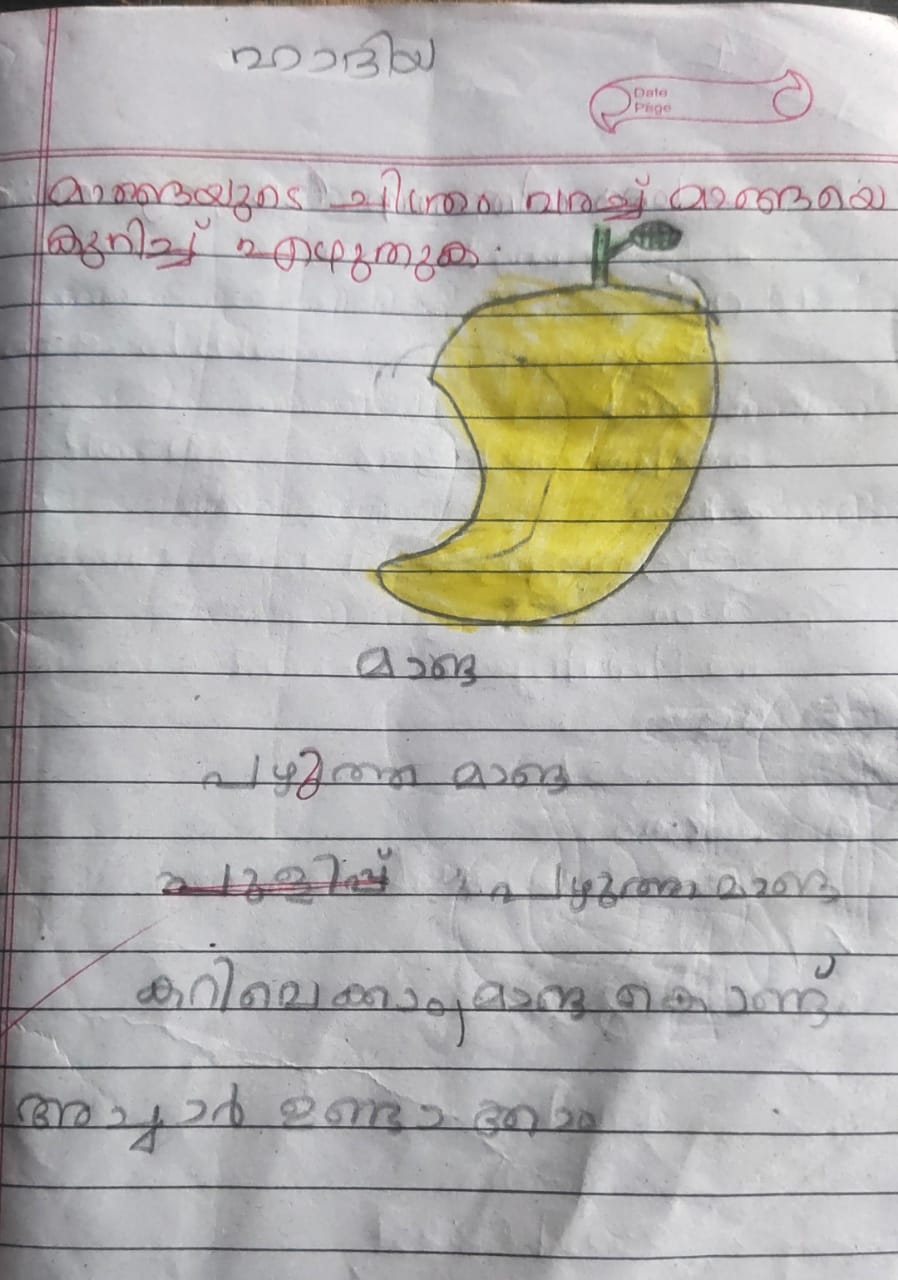 ഹാദിയ
Date
Page
മാങ്ങയുടെ ചിത്രം വരച്ച് മാങ്ങയെ
കുറിച്ച് എഴുതുക.
മാങ്ങ
പഴുത്ത മാങ്ങ
പുളിപ്പ് പഴുത്ത മാങ്ങ
കറിവെക്കാം മാങ്ങ കൊണ്ട്
അച്ചാർ ഉണ്ടാക്കാം